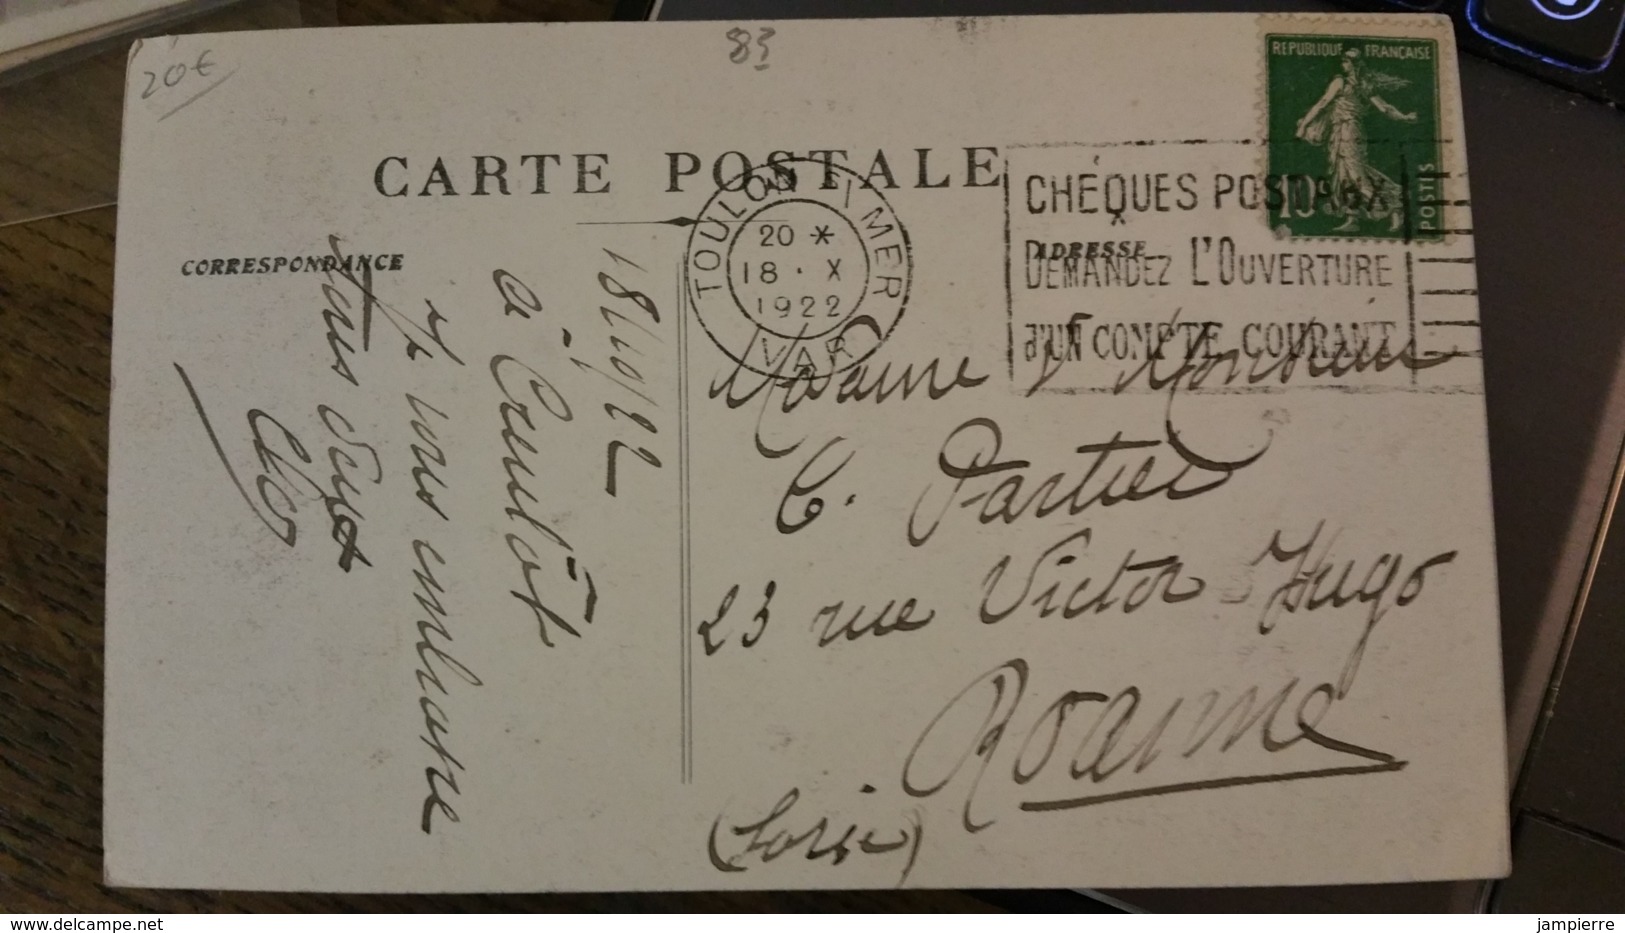 20€
83
REPUBLIQUE FRANÇAISE
10
POSTES
CARTE POSTALE
TOULON S/ MER
20 *
18 · X
1922
VAR
CHÉQUES POSTAUX
DEMANDEZ L'OUVERTURE
d'UN COMPTE COURANT
CORRESPONDANCE
ADRESSE
18/10/22
à Creulôt
Je vous embrasse
tous deux
Madame & Monsieur
C. Partier
23 rue Victor Hugo
Roanne
(Loire)
jampierre